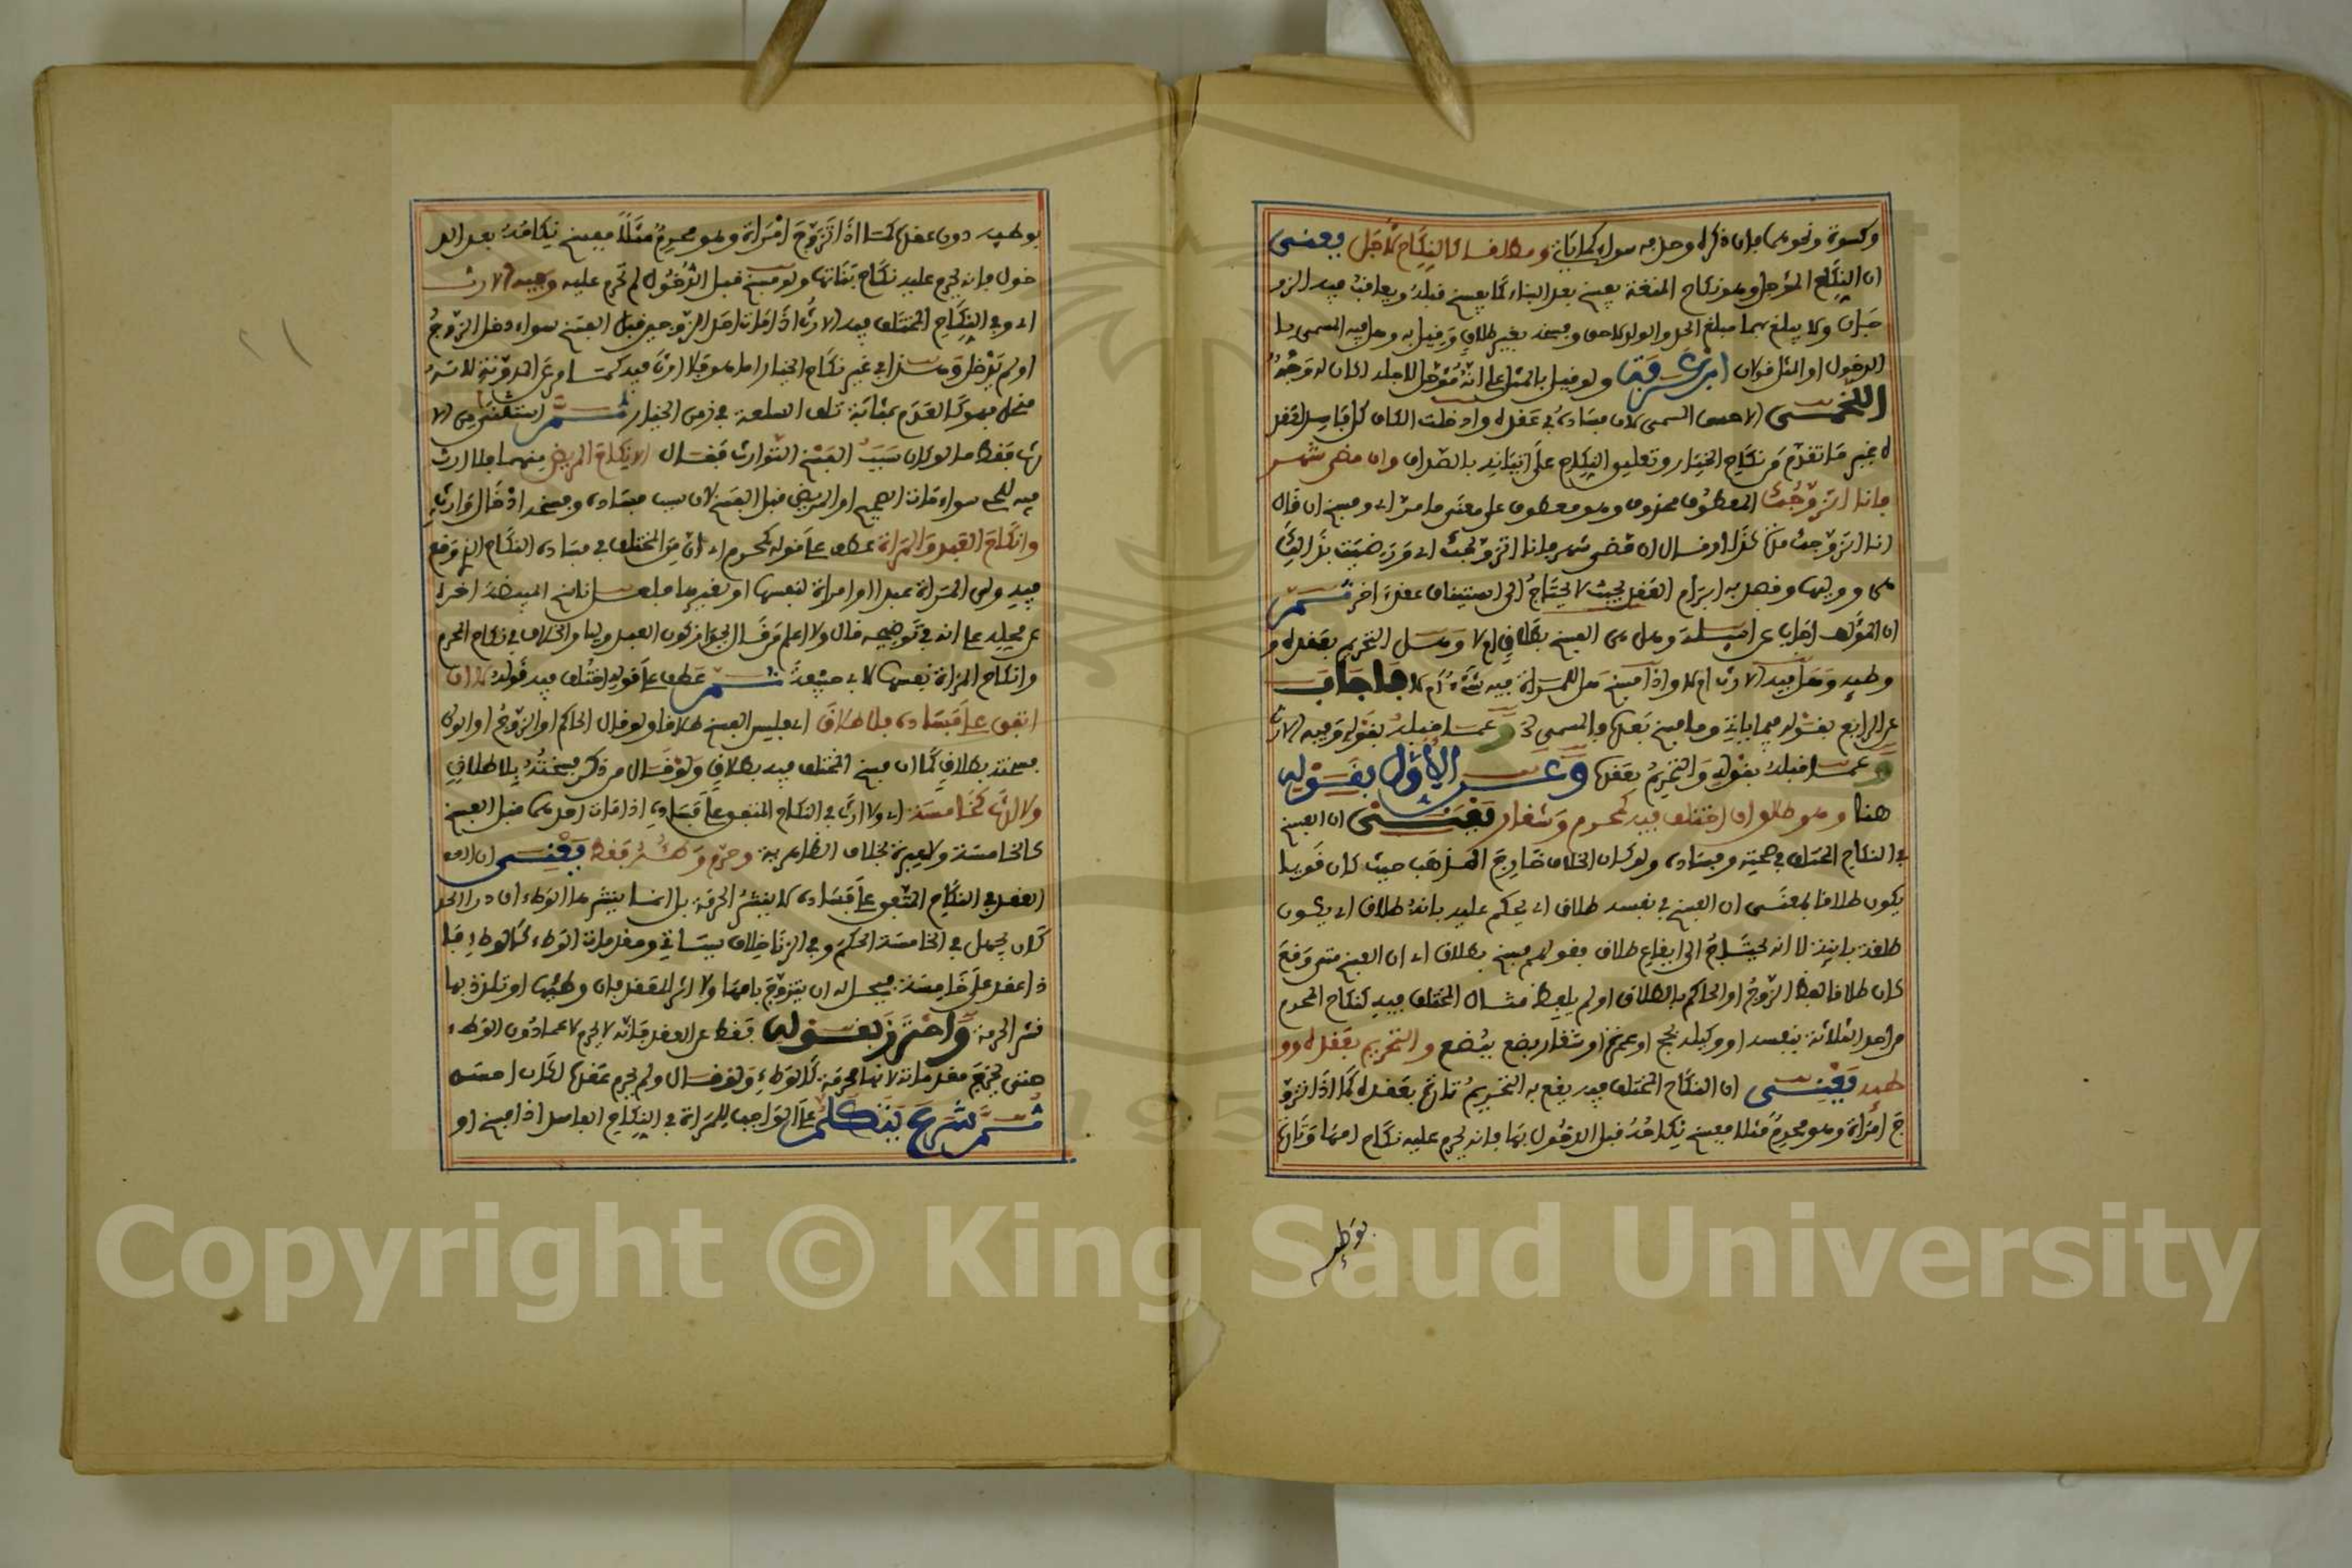 وكسوة ونحوهما فإن ذكره وحل به سواه كما يأتي ومطلقا كالنكاح لأجل يعنى
ان النكاح المؤجل وهو نكاح المتعة يفسخ بعد البناء كما يفسخ قبله ويعاقب فيه الزو
جان ولا يبلغ بهما مبلغ الحد والولد لاحق وفسخه بغير طلاق وقيل به وهل فيه المسمى با
لدخول او المثل قولان ابن عرفة ولو قيل بالمثل على انه مؤجل للاجله لكان له وجه
اللخمي الاحسن المسمى لان فساده في عقده وادخلت الكاف كل فاسد لعقد
ه غير ما تقدم من نكاح الخيار وتعليق النكاح على اتيانه بالصداق وان مضى شهر
فانا اتزوجك المعطوف محذوف وهو معطوف على معنى ما مر اي وفسخ ان قال
انا اتزوجك او قال ان مضى شهر فانا اتزوجك اي ورضيت بذلك
هي ووليها وقصد به ابرام العقد بحيث لا يحتاج الى استيناف عقد اخر ثم
ان المؤلف اجاب عن اسئلة وهل هي الفسخ بطلاق ام لا وهل التحريم بعقده و
وطئه وهل فيه الارث ام لا واذا فسخ هل للمراة فيه شئ ام لا فاجاب
عن الرابع بقوله فيما ياتي وما فسخ بعده فالمسمى الخ وعما قبله بقوله وفيه الارث
وعما قبله بقوله والتحريم بعقده وعن الاول بقوله
هنا وهو طلاق ان اختلف فيه كمحرم وشغار يعنى ان الفسخ
في النكاح المختلف في صحته وفساده ولو كان الخلاف خارج المذهب حيث كان قويا
يكون طلاقا بمعنى ان الفسخ في نفسه طلاق اي يحكم عليه بانه طلاق اي يكون
طلقة باينة لا انه يحتاج الى ايقاع طلاق فقولهم فسخ بطلاق اي ان الفسخ متى وقع
كان طلاقا لفظ الزوج او الحاكم بالطلاق او لم يلفظ مثال المختلف فيه كنكاح المحرم
من احد الثلاثة بنفسه او وكيله بحج او عمرة او شغار بضع ببضع والتحريم بعقده وو
طئه يعنى ان النكاح المختلف فيه يقع به التحريم تارة بعقده كما اذا تزو
ج امراة وهو محرم مثلا ففسخ نكاحه قبل الدخول بها فانه يحرم عليه نكاح امها وتارة
بوطئه
بوطئه دون عقده كما اذا تزوج امراة وهو محرم مثلا ففسخ نكاحه بعد الد
خول فانه يحرم عليه نكاح بناتها ولو فسخ قبل الدخول لم تحرم عليه وفيه الارث
اي وفي النكاح المختلف فيه الارث اذا مات احد الزوجين قبل الفسخ سواء دخل الزوج
او لم يدخل وهذا في غير نكاح الخيار اما هو فلا ارث فيه كما في المدونة لانه
منحل فهو كالعدم بمثابة تلف السلعة في زمن الخيار ثم استثنى من الا
رث فقط ما لو كان سبب الفسخ التوارث فقال الا نكاح المريض منهما فلا ارث
فيه للحي سواء مات الصحيح او المريض قبل الفسخ لان سبب فساده وفسخه ادخال وارث
وانكاح العبد والمراة عطف على قوله كمحرم اي ان من المختلف في فساده النكاح الذي وقع
فيه ولي المراة عبدا او امراة لنفسها او غيرها
وانكاح المراة نفسها لابي حنيفة ثم عطف على قوله اختلف فيه قوله لا ان
اتفق على فساده فلا طلاق اي فليس الفسخ طلاقا ولو قال الحاكم او الزوج او الولي
فسخته بطلاق كما ان فسخ المختلف فيه بطلاق ولو قال من ذكر فسخته بلا طلاق
ولا ارث كخامسة اي ولا ارث في النكاح المتفق على فساده اذا مات احدهما قبل الفسخ
كالخامسة ولا عبرة بخلاف الظاهرية وحرم وطئه فقط يعنى ان
العقد في النكاح المتفق على فساده لا ينشر الحرمة بل انما ينشرها الوطء ان درا الحد
كان يجهل في الخامسة الحكم وفي الزنا خلاف سياتي ومقدمات الوطء كالوطء فا
ذا عقد على خامسة فيحل له ان يتزوج بامها ولا اثر للعقد فان وطئها او تلذذ بها
نشر الحرمة واحترز بقوله فقط عن العقد فانه لا يحرم لا عما دون الوطء
حتى تخرج مقدماته لانها محرمة كالوطء ولو قال ولم يحرم عقده لكان احسن
ثم شرع يتكلم على الواجب للمراة في النكاح الفاسد اذا فسخ او
Copyright © King Saud University